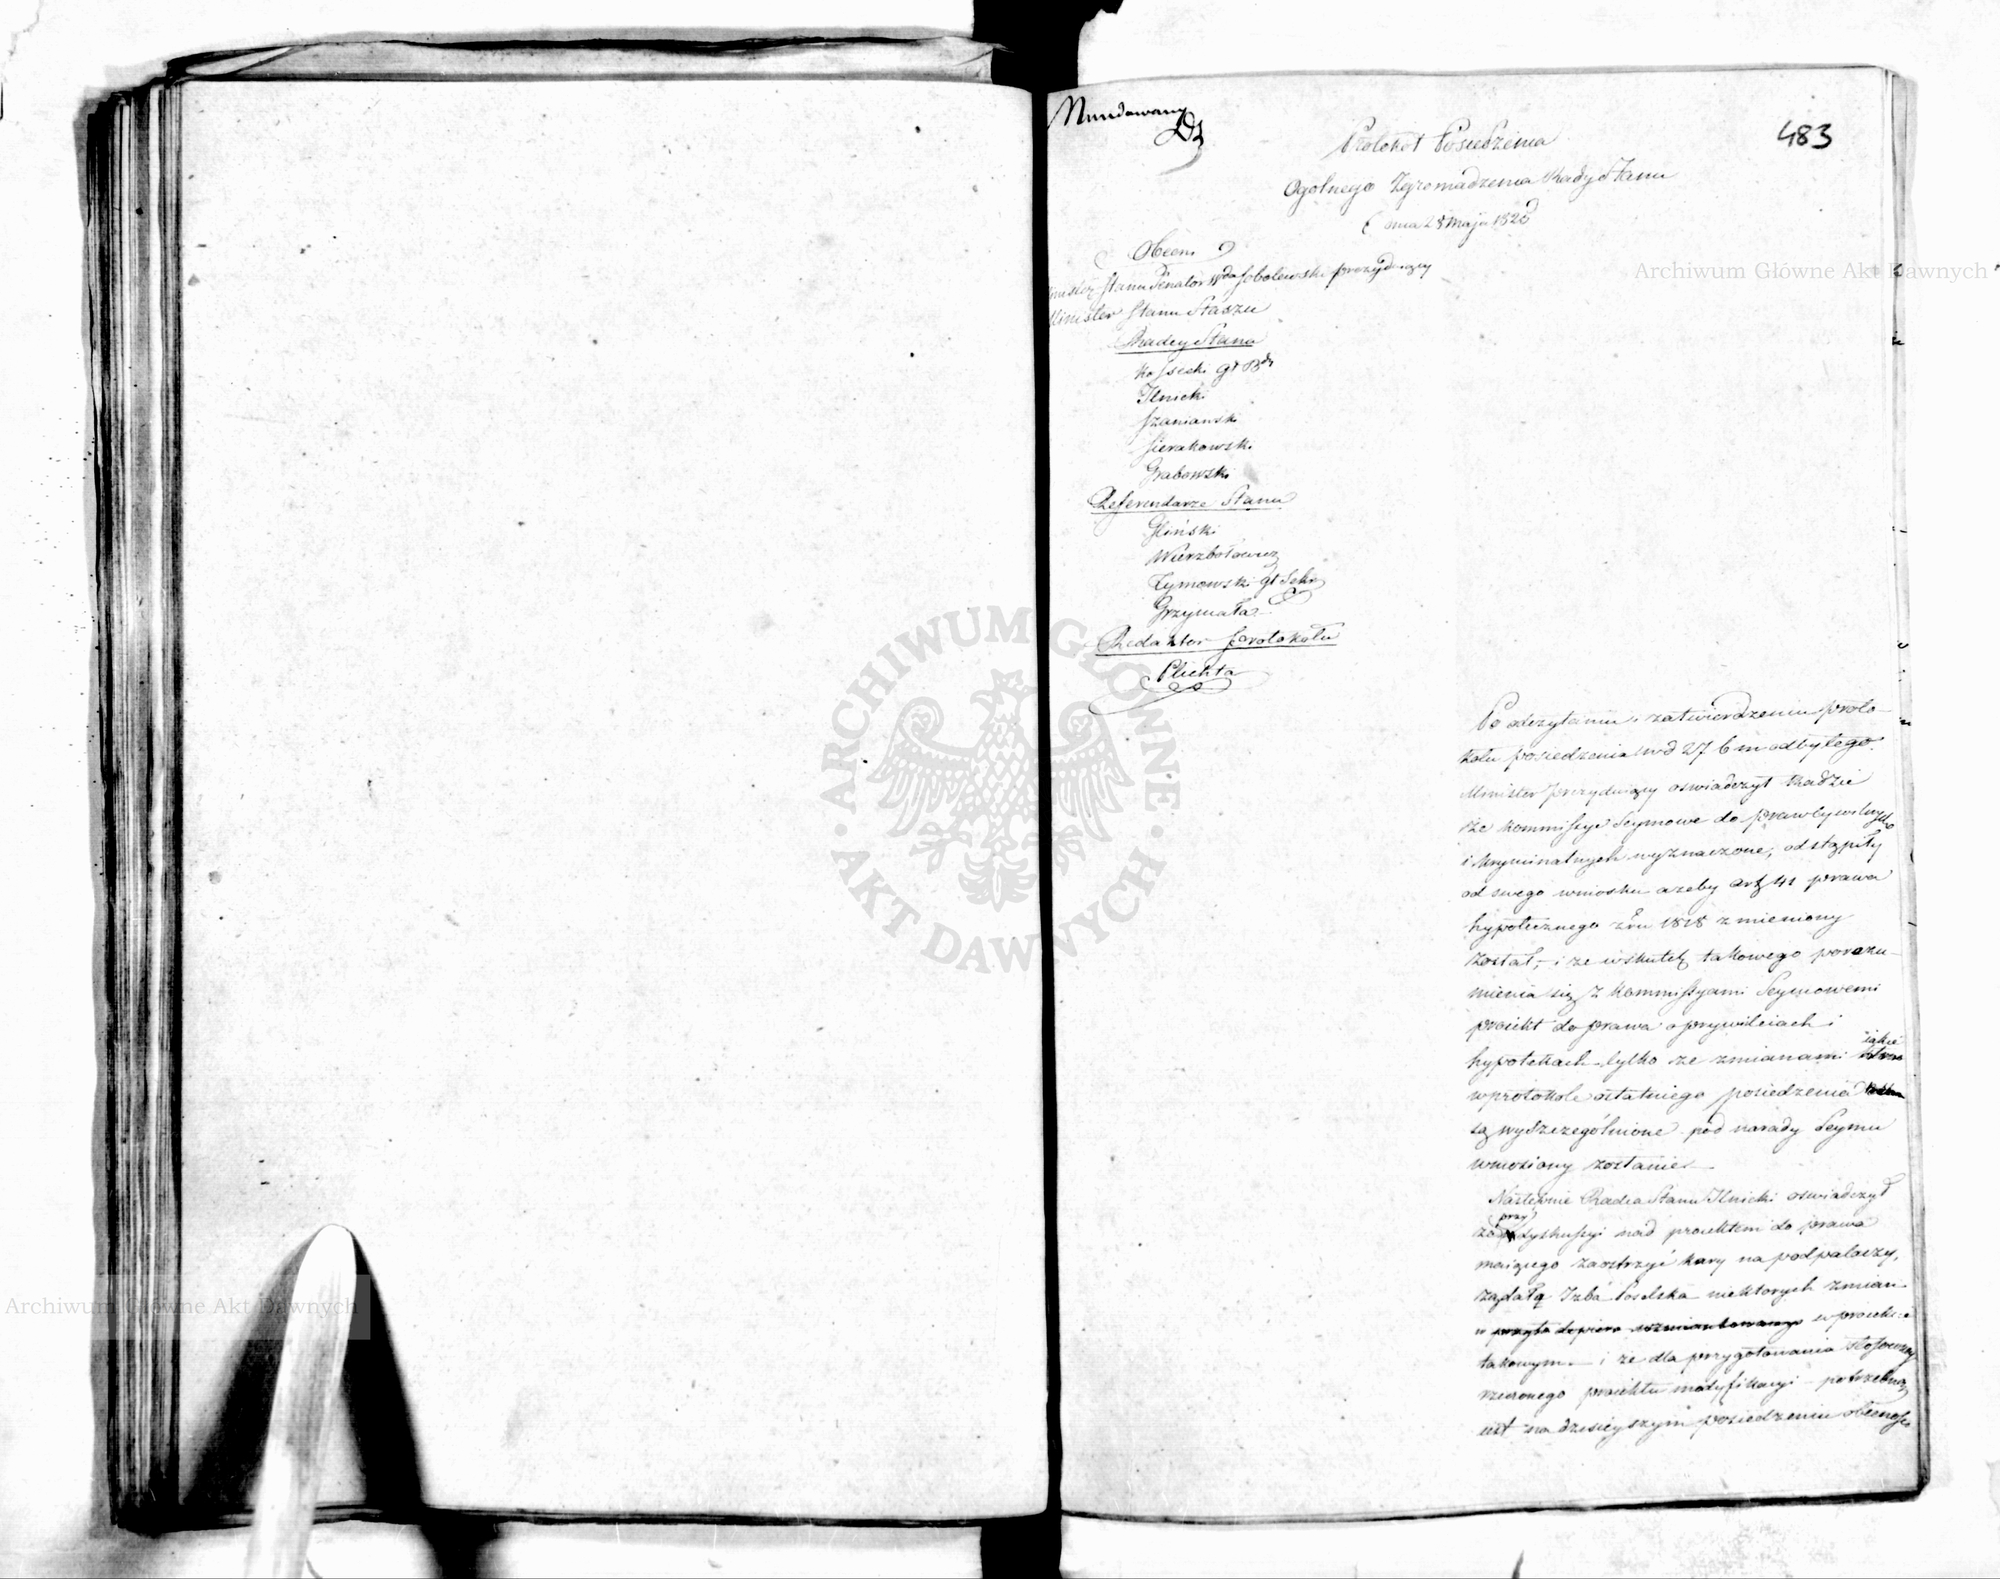 Mundowany
483
Protokół Posiedzenia
Ogolnego Zgromadzenia Rady Stanu
dnia 28 Maja 1825
Obecni
Minister Stanu Senator Wda Sobolewski prezyduiący
Minister Stanu Staszic
Radcy Stanu
Kossecki
Ilnicki
Szaniawski
Sierakowski
Grabowski
Referendarze Stanu
Gliński
Wierzbołowicz
Tymowski gł Sekr
Grzymała
Redaktor Protokołu
Plichta
Po odczytaniu i zatwierdzeniu proto-
kołu posiedzenia w d 27 b m odbytego.
Minister prezyduiący oswiadczył Radzie
że Kommissye Seymowe do praw cywilnych
i kryminalnych wyznaczone, odstąpiły
od swego wniosku ażeby art 41 prawa
hypotecznego z ru 1818 zmieniony
został, i że wskutek takowego porozu-
mienia się z Kommissyami Seymowemi
proiekt do prawa o przywileiach i
hypotekach tylko ze zmianami iakie
w protokole ostatniego posiedzenia
są wyszczególnione pod narady Seymu
wniesiony zostanie.
Następnie Radca Stanu Ilnicki oswiadczył
że przy dyskussyi nad proiektem do prawa
maiącego zaostrzyć kary na podpalaczy,
żądała Izba Poselska niektorych zmian
w proiekcie
takowym. i że dla przygotowania stosowney
rzeczonego proiektu modyfikacyi potrzebną
iest na dzisieyszym posiedzeniu obecność
Archiwum Główne Akt Dawnych
Archiwum Główne Akt Dawnych
ARCHIWUM GŁÓWNE · AKT DAWNYCH ·